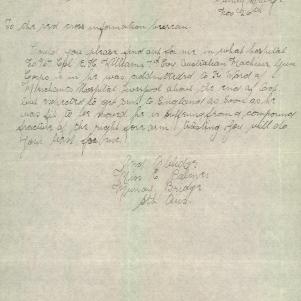 Nov 26th
To the red cross information bureau.
Could you please find out for me in what hospital
Cpl E. H. Williams 7th Coy Australian Machine Gun
Corps is in he was admitted to F Ward of
Merchants Hospital Liverpool about the end of
but expected to get sent to England as soon as he
was fit to be moved he is suffering from a compound
fracture of the right fore arm. trusting you will do
your best for me.
Miss E Palmer
Murray Bridge
Sth Aus.